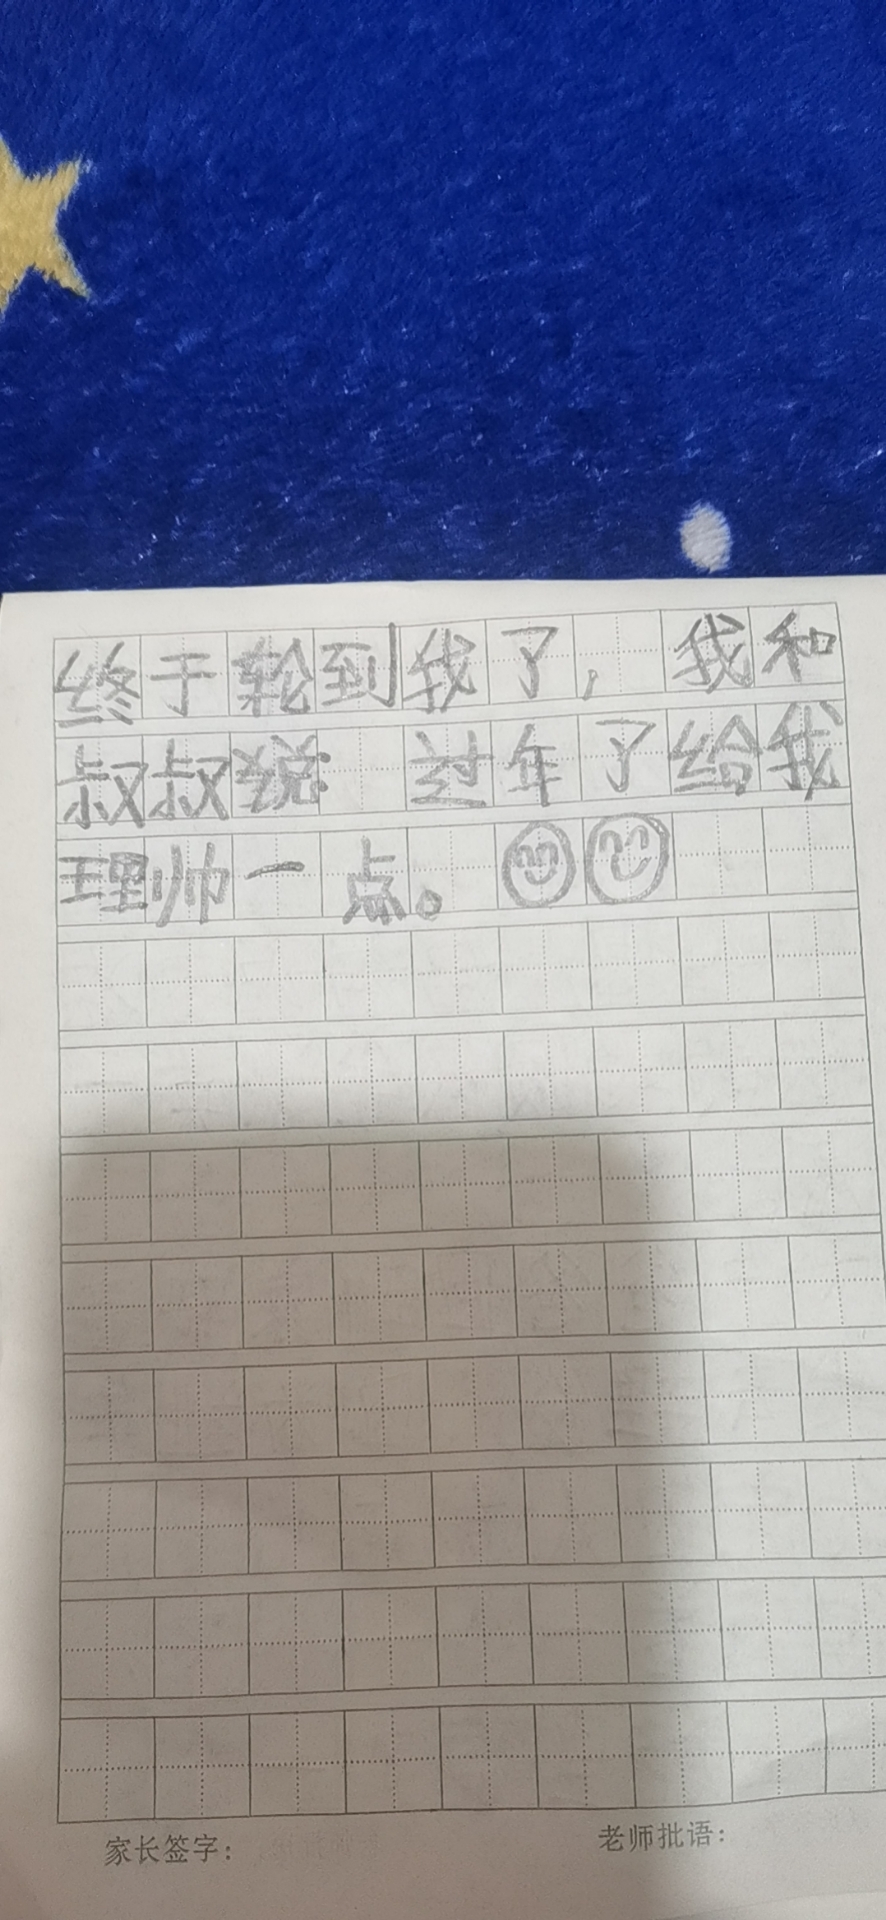 终于轮到我了，我和
叔叔说 过年了给我
理帅一点。
家长签字：
老师批语：